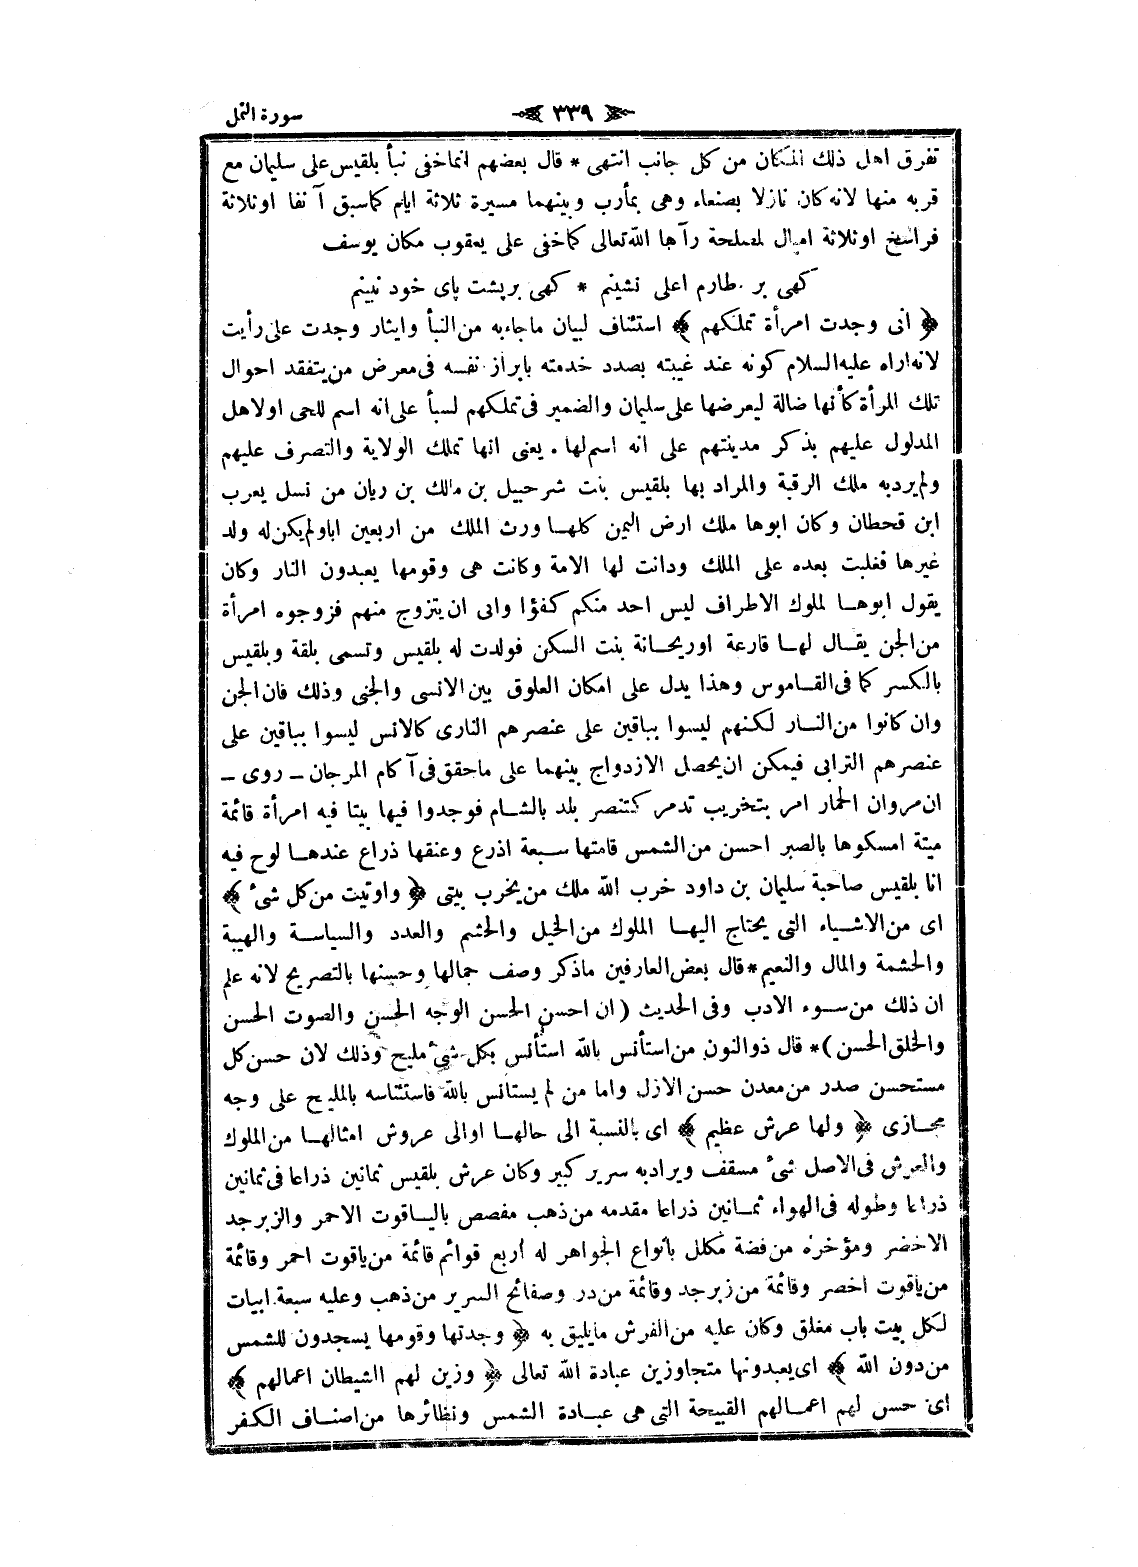 سورة النمل
٣٣٩
تفرق اهل ذلك المكان من كل جانب انتهى * قال بعضهم انماخفى نبأ بلقيس على سليمان مع
قربه منها لانه كان نازلا بصنعاء وهى بمأرب وبينهما مسيرة ثلاثة ايام كماسبق آنفا اوثلاثة
فراسخ اوثلاثة اميال لمصلحة رآها الله تعالى كماخفى على يعقوب مكان يوسف
كهى بر طارم اعلى نشينم * كهى برپشت پاى خود نبينم
﴿ انى وجدت امرأة تملكهم ﴾ استئناف لبيان ماجاءبه من النبأ وايثار وجدت على رأيت
لانه اراه عليه السلام كونه عند غيبته بصدد خدمته بابراز نفسه فى معرض من يتفقد احوال
تلك المرأة كأنها ضالة ليعرضها على سليمان والضمير فى تملكهم لسبأ على انه اسم للحى اولاهل
المدلول عليهم بذكر مدينتهم على انه اسم لها . يعنى انها تملك الولاية والتصرف عليهم
ولم يردبه ملك الرقبة والمراد بها بلقيس بنت شرحبيل بن مالك بن ريان من نسل يعرب
ابن قحطان وكان ابوها ملك ارض اليمن كلها ورث الملك من اربعين اباولم يكن له ولد
غيرها فغلبت بعده على الملك ودانت لها الامة وكانت هى وقومها يعبدون النار وكان
يقول ابوها لملوك الاطراف ليس احد منكم كفؤا وابى ان يتزوج منهم فزوجوه امرأة
من الجن يقال لها قارعة اوريحانة بنت السكن فولدت له بلقيس وتسمى بلقة وبلقيس
بالكسر كما فى القاموس وهذا يدل على امكان العلوق بين الانسى والجنى وذلك فان الجن
وان كانوا من النار لكنهم ليسوا بباقين على عنصرهم النارى كالانس ليسوا بباقين على
عنصرهم الترابى فيمكن ان يحصل الازدواج بينهما على ماحقق فى آكام المرجان ــ روى ــ
ان مروان الحمار امر بتخريب تدمر كتنصر بلد بالشام فوجدوا فيها بيتا فيه امرأة قائمة
ميتة امسكوها بالصبر احسن من الشمس قامتها سبعة اذرع وعنقها ذراع عندها لوح فيه
انا بلقيس صاحبة سليمان بن داود خرب الله ملك من يخرب بيتى ﴿ واوتيت من كل شئ ﴾
اى من الاشياء التى يحتاج اليها الملوك من الخيل والحشم والعدد والسياسة والهيبة
والحشمة والمال والنعيم * قال بعض العارفين ماذكر وصف جمالها وحسنها بالتصريح لانه علم
ان ذلك من سوء الادب وفى الحديث ( ان احسن الحسن الوجه الحسن والصوت الحسن
والخلق الحسن ) * قال ذوالنون من استأنس بالله استأنس بكل شئ مليح وذلك لان حسن كل
مستحسن صدر من معدن حسن الازل واما من لم يستانس بالله فاستئناسه بالمليح على وجه
مجازى ﴿ ولها عرش عظيم ﴾ اى بالنسبة الى حالها اوالى عروش امثالها من الملوك
والعرش فى الاصل شئ مسقف ويرادبه سرير كبير وكان عرش بلقيس ثمانين ذراعا فى ثمانين
ذراعا وطوله فى الهواء ثمانين ذراعا مقدمه من ذهب مفصص بالياقوت الاحمر والزبرجد
الاخضر ومؤخره من فضة مكلل بانواع الجواهر له أربع قوائم قائمة من ياقوت احمر وقائمة
من ياقوت اخضر وقائمة من زبرجد وقائمة من در وصفائح السرير من ذهب وعليه سبعة ابيات
لكل بيت باب مغلق وكان عليه من الفرش مايليق به ﴿ وجدتها وقومها يسجدون للشمس
من دون الله ﴾ اى يعبدونها متجاوزين عبادة الله تعالى ﴿ وزين لهم الشيطان اعمالهم ﴾
اى حسن لهم اعمالهم القبيحة التى هى عبادة الشمس ونظائرها من اصناف الكفر